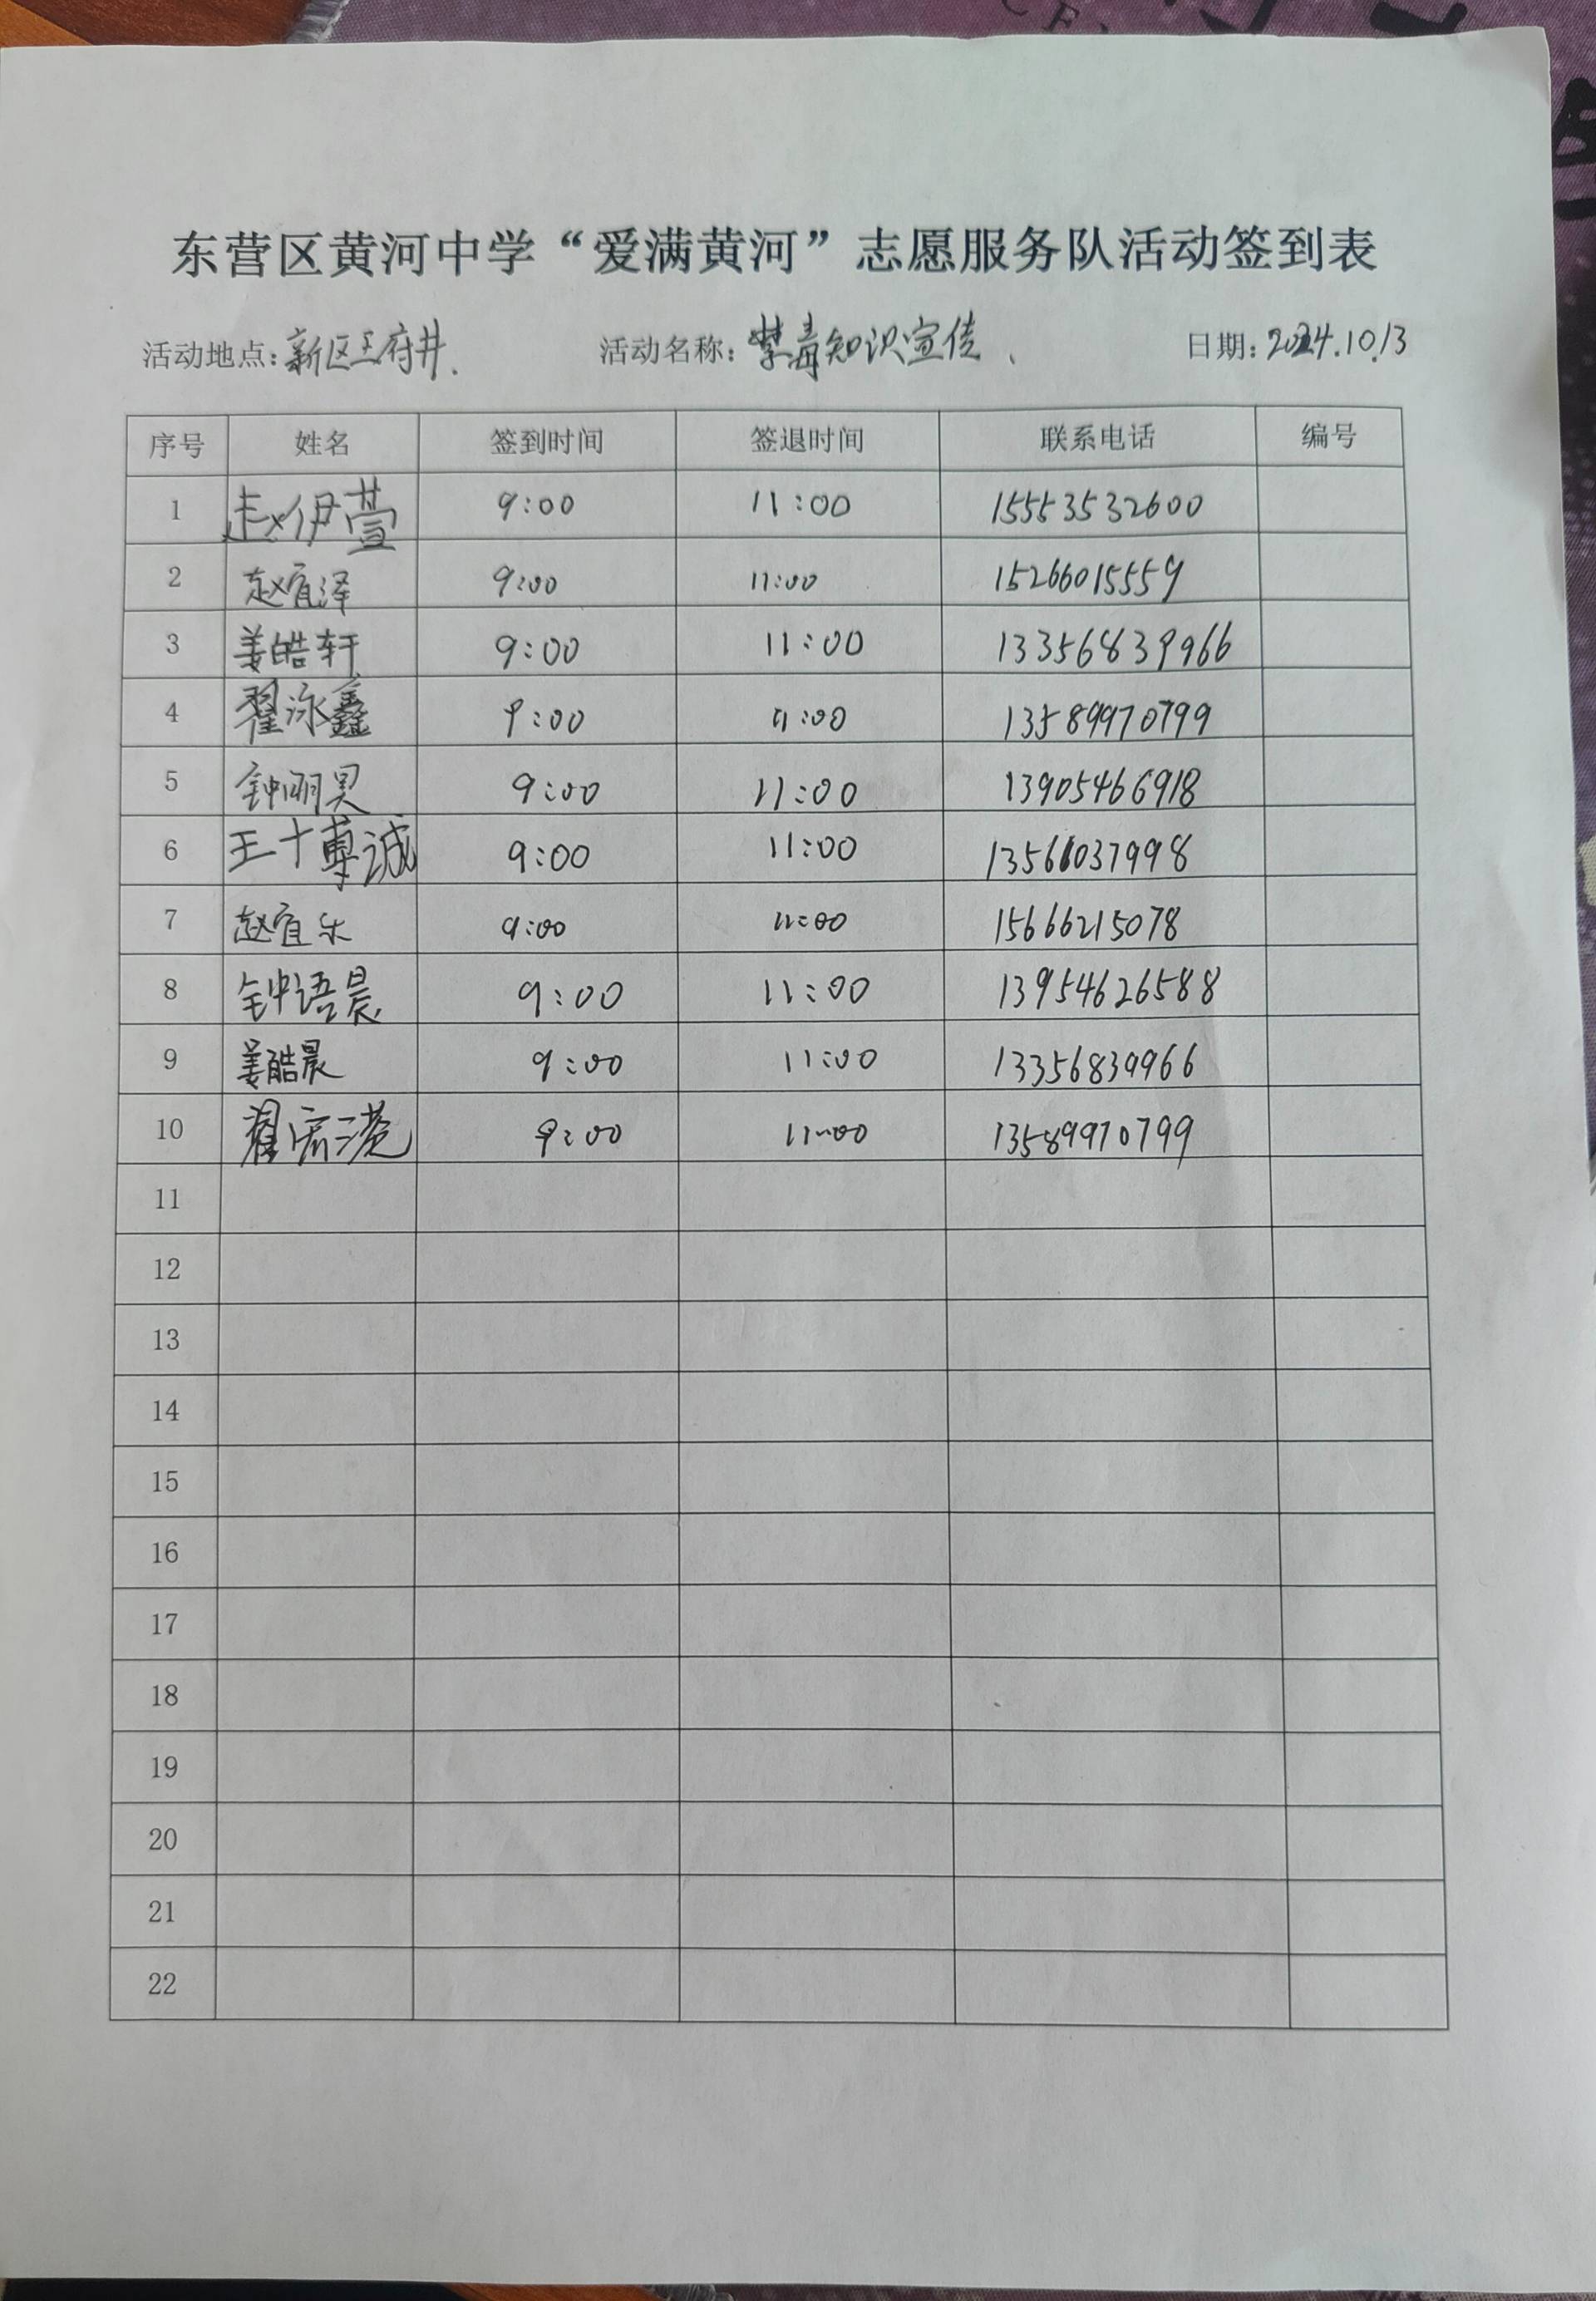 东营区黄河中学“爱满黄河”志愿服务队活动签到表
活动地点:新区王府井. 活动名称:禁毒知识宣传、 日期:2024.10.13
序号 姓名 签到时间 签退时间 联系电话 编号
1 赵伊萱 9:00 11:00 15553532600
2 赵宜泽 9:00 11:00 15266015559
3 姜皓轩 9:00 11:00 13356839966
4 翟泳鑫 9:00 11:00 13589970799
5 钟明昊 9:00 11:00 13905466918
6 王博诚 9:00 11:00 13561037998
7 赵宜乐 9:00 11:00 15666215078
8 钟语晨 9:00 11:00 13954626588
9 姜皓晨 9:00 11:00 13356839966
10 9:00 11:00 13589970799
11
12
13
14
15
16
17
18
19
20
21
22